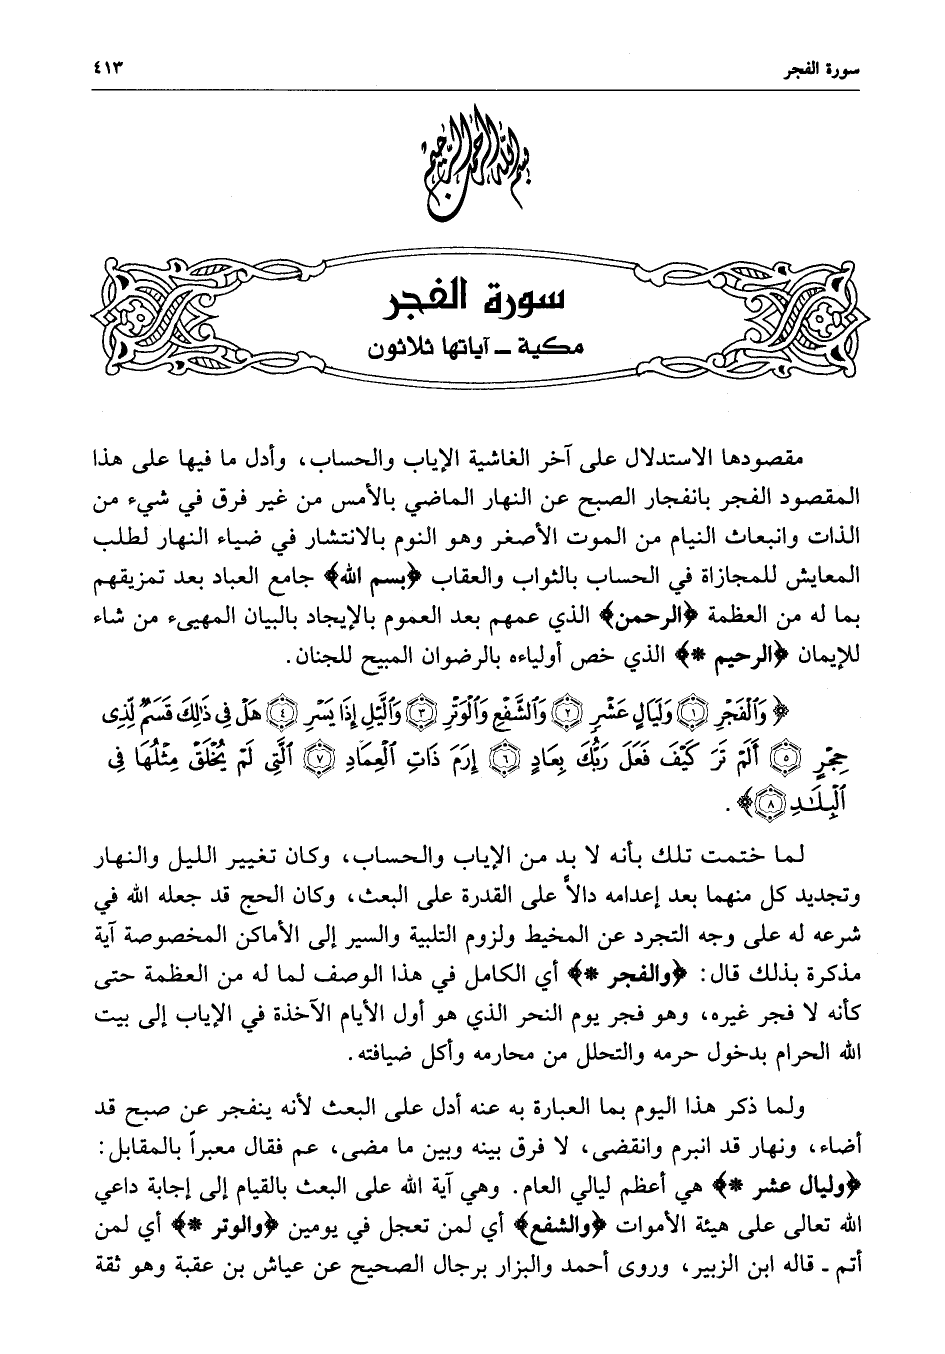 سورة الفجر ٤١٣
بسم الله الرحمن الرحيم
سورة الفجر
مكية ــ آياتها ثلاثون
مقصودها الاستدلال على آخر الغاشية الإياب والحساب، وأدل ما فيها على هذا
المقصود الفجر بانفجار الصبح عن النهار الماضي بالأمس من غير فرق في شيء من
الذات وانبعاث النيام من الموت الأصغر وهو النوم بالانتشار في ضياء النهار لطلب
المعايش للمجازاة في الحساب بالثواب والعقاب ﴿بسم الله﴾ جامع العباد بعد تمزيقهم
بما له من العظمة ﴿الرحمن﴾ الذي عمهم بعد العموم بالإيجاد بالبيان المهيىء من شاء
للإيمان ﴿الرحيم *﴾ الذي خص أولياءه بالرضوان المبيح للجنان.
﴿وَٱلْفَجْرِ ۝١ وَلَيَالٍ عَشْرٍ ۝٢ وَٱلشَّفْعِ وَٱلْوَتْرِ ۝٣ وَٱلَّيْلِ إِذَا يَسْرِ ۝٤ هَلْ فِى ذَٰلِكَ قَسَمٌ لِّذِى
حِجْرٍ ۝٥ أَلَمْ تَرَ كَيْفَ فَعَلَ رَبُّكَ بِعَادٍ ۝٦ إِرَمَ ذَاتِ ٱلْعِمَادِ ۝٧ ٱلَّتِى لَمْ يُخْلَقْ مِثْلُهَا فِى
ٱلْبِلَـٰدِ ۝٨﴾.
لما ختمت تلك بأنه لا بد من الإياب والحساب، وكان تغيير الليل والنهار
وتجديد كل منهما بعد إعدامه دالاً على القدرة على البعث، وكان الحج قد جعله الله في
شرعه له على وجه التجرد عن المخيط ولزوم التلبية والسير إلى الأماكن المخصوصة آية
مذكرة بذلك قال: ﴿والفجر *﴾ أي الكامل في هذا الوصف لما له من العظمة حتى
كأنه لا فجر غيره، وهو فجر يوم النحر الذي هو أول الأيام الآخذة في الإياب إلى بيت
الله الحرام بدخول حرمه والتحلل من محارمه وأكل ضيافته.
ولما ذكر هذا اليوم بما العبارة به عنه أدل على البعث لأنه ينفجر عن صبح قد
أضاء، ونهار قد انبرم وانقضى، لا فرق بينه وبين ما مضى، عم فقال معبراً بالمقابل:
﴿وليال عشر *﴾ هي أعظم ليالي العام. وهي آية الله على البعث بالقيام إلى إجابة داعي
الله تعالى على هيئة الأموات ﴿والشفع﴾ أي لمن تعجل في يومين ﴿والوتر *﴾ أي لمن
أتم ـ قاله ابن الزبير، وروى أحمد والبزار برجال الصحيح عن عياش بن عقبة وهو ثقة